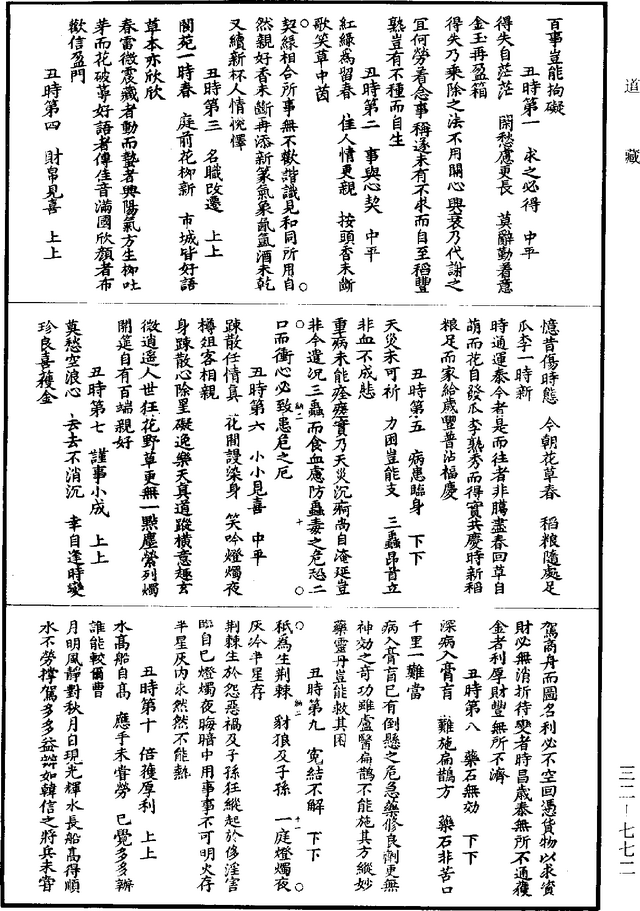 道藏
百事豈能拘礙
丑時第一　求之必得　中平
得失自茫茫　閑愁慮更長　莫辭勤着意
金玉再盈箱
得失乃乘除之法不用關心興衰乃代謝之
宜何勞着念事稱遂未有不求而自至稻豐
熟豈有不種而自生
丑時第二　事與心契　中平
紅綠爲留春　佳人情更親　按頭香未斷
歌笑草中茵
契緣相合所事無不歡諧識見和同所用自
然親好香未斷再添新篆氣象氤氳酒未乾
又續新杯人情悅懌
丑時第三　名職改遷　上上
閬苑一時春　庭前花柳新　市城皆好語
草本亦欣欣
春雷微震藏者動而蟄者興陽氣方生柳吐
芽而花破萼好語者傳佳音滿國欣顏者布
歡信盈門
丑時第四　財帛見喜　上上
憶昔傷時態　今朝花草春　稻粮隨處足
瓜李一時新
時通運泰今者是而往者非臘盡春回草自
萌而花自發瓜李熟秀而得實共慶時新稻
粮足而家給歲豐普沾福慶
丑時第五　病患臨身　下下
天災未可祈　力困豈能支　三蟲昂首立
非血不成悲
重病未能痊瘥實乃天災沉痾尚自淹延豈
非今遣況三蟲而食血應防蟲毒之危恐二
口而衝心必致患危之厄
丑時第六　小小見喜　中平
踈散任情真　花間謾染身　笑吟燈燭夜
樽俎客相親
身踈散心除罣礙逸樂天真道蹤橫意趣玄
微逍遥人世狂花野草更無一點塵縈列燭
開筵自有百端親好
丑時第七　謹事小成　上上
莫愁空浪心　去去不消沉　幸自逢時變
珍良喜獲金
駕商舟而圖名利必不空回憑貨物以求資
財必無沾折待變者時昌歲泰無所不通獲
金者利厚財豐無所不濟
丑時第八　藥石無効　下下
深病入膏肓　難施扁鵲方　藥石非苦口
千里一難當
病入膏肓已有倒懸之危急藥修良劑更無
神効之奇功雖盧醫扁鵲不能施其方縱妙
藥靈丹豈能救其困
丑時第九　寃結不解　下下
秖爲生荆棘　豺狼及子孫　一庭燈燭夜
灰冷半星存
荆棘生於怨惡禍及子孫狂縱起於侈淫害
臨自已燈燭夜晦暗中用事事不可明火存
半星灰内求然然不能熱
丑時第十　倍獲厚利　上上
水高船自高　應手未嘗勞　已覺多多辦
誰能較爾曹
月明風靜對秋月白現光輝水長船高得順
水不勞撑駕多多益辦如韓信之將兵未嘗
三二—七七二